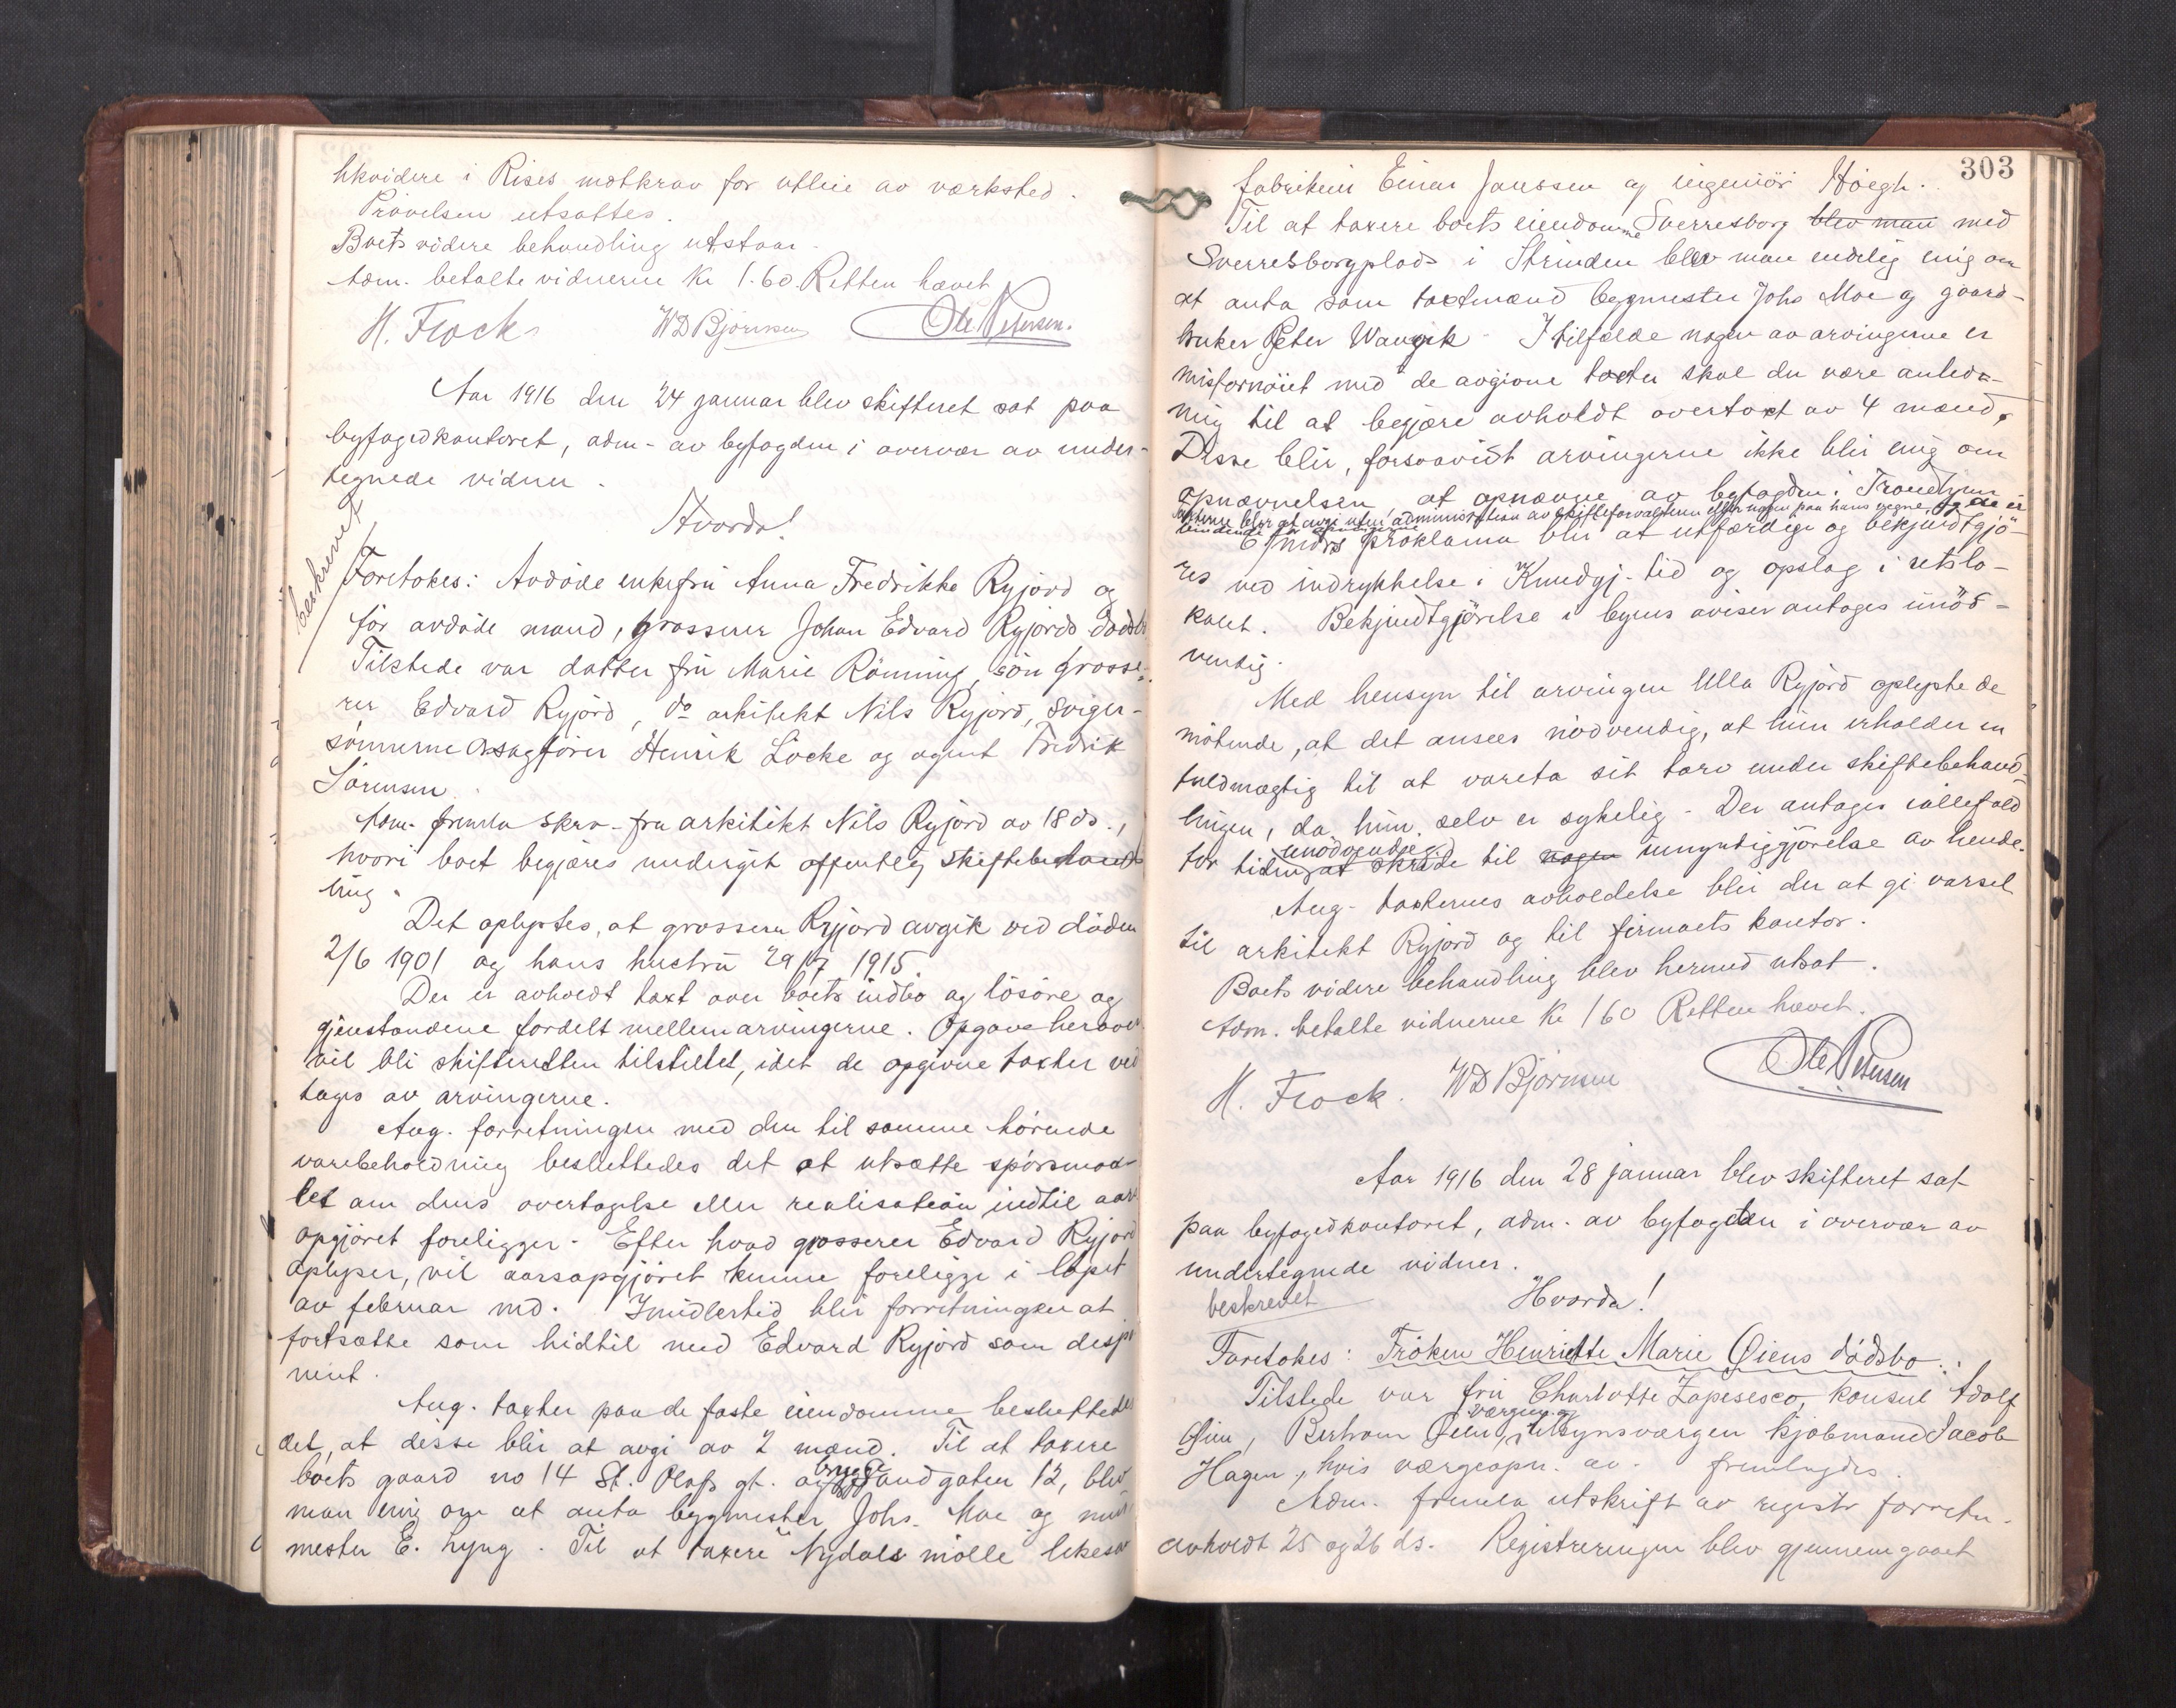 likvidere i Rises motkrav for utleie av værksted.
Prøvelsen utsattes.
Boets videre behandling utstaar.
Adm. betalte vidnerne Kr 1.60. Retten hævet
H. Frock WD Bjørnsen Ole Petersen.
Aar 1916 den 24 januar blev skifteret sat paa
byfogedkontoret, adm. av byfogden i overvær av under-
tegnede vidner.
Hvorda!
beskrevet
Foretokes: Avdøde enkefru Anna Fredrikke Ryjord og
før avdøde mand, grosserer Johan Edvard Ryjords dødsbo
Tilstede var datter fru Marie Rønning, søn grosse-
rer Edvard Ryjord, do arkitekt Nils Ryjord, sviger-
sønnerne Osagfører Henrik Löcke og agent Fredrik
Sørensen.
Adm. fremla skrv. fra arkitekt Nils Ryjord av 18 ds.,
hvori boet begjæres undergit offentlig skiftebehand-
ling.
Det oplystes, at grosserer Ryjord avgik ved døden
2/6 1901 og hans hustru 29/7 1915.
Der er avholdt taxt over boets indbo og løsøre og
gjenstandene fordelt mellem arvingerne. Opgave herover
vil bli skifteretten tilstillet, idet de opgivne taxter ved
tages av arvingerne.
Ang. forretningen med den til samme hørende
varebeholdning besluttedes det at utsætte spørsmaa-
let om dens overtagelse eller realisation indtil aars
opgjøret foreligger. Efter hvad grosserer Edvard Ryjord
oplyser, vil aarsopgjøret kunne foreligge i løpet
av februar md. Imidlertid blir forretningen at
fortsætte som hidtil med Edvard Ryjord som dispo
nent.
Ang. taxter paa de faste eiendomme besluttedes
det, at disse blir at avgi av 2 mænd. Til at taxere
boets gaard no 14 St. Olafs gt. og brygge Sandgaten 12, blev
man enig om at anta bygmester Johs. Moe og mur
mester E. Lyng. Til at taxere Nydals mølle likesaa
303
fabrikeier Einar Janssen og ingeniör Høegh.
Til at taxere boets eiendomme Sverresborg blev man med
Sverresborgplads i Strinden blev man endelig enig om
at anta som taxtmænd bygmester Johs Moe og gaard-
bruker Peter Wangik. I tilfælde nogen av arvingerne er
misfornøiet med de avgivne taxter skal der være anled-
ning til at begjære avholdt overtaxt av 4 mænd,
Disse blir, forsaavidt arvingerne ikke blir enig om
opnævnelsen at opnævne av byfogden i Trondhjem
Taxterne blir at avgi uten administration av skifteforvalteren eller nogen paa hans vegne, og de er
bindende for arvingerne
6 mdrs proklama blir at utfærdige og bekjendtgjö-
res ved indrykkelse i Kundgj. tid og opslag i retslo-
kalet. Bekjendtgjørelse i byens aviser antages unød-
vendig.
Med hensyn til arvingen Ulla Ryjord oplyste de
møtende, at det ansees nødvendig, at hun erholder en
fuldmægtig til at vareta sit tarv under skiftebehand-
lingen, da hun selv er sykelig. Der antages iallefald
for tiden unødvendig at skride til nogen umyndiggjørelse av hende.
Ang. taxternes avholdelse blir der at gi varsel
til arkitekt Ryjord og til firmaets kontor.
Boets videre behandling blev hermed utsat.
Adm. betalte vidnerne Kr 160 Retten hævet.
H. Frock. WD Bjørnsen Ole Petersen
Aar 1916 den 28 januar blev skifteret sat
paa byfogedkontoret, adm. av byfogden i overvær av
undertegnede vidner.
beskrevet Hvorda!
Foretokes: Frøken Henriette Marie Øiens dødsbo.
Tilstede var fru Charlotte Zapesesco, konsul Adolf
Øien, Bertram Øien, værgen og tilsynsværgen kjøbmand Jacob
Hagen, hvis værgeopn. av fremlagdes.
Adm. fremla utskrift av registr forretn.
avholdt 25 og 26 ds. Registreringen blev gjennemgaaet